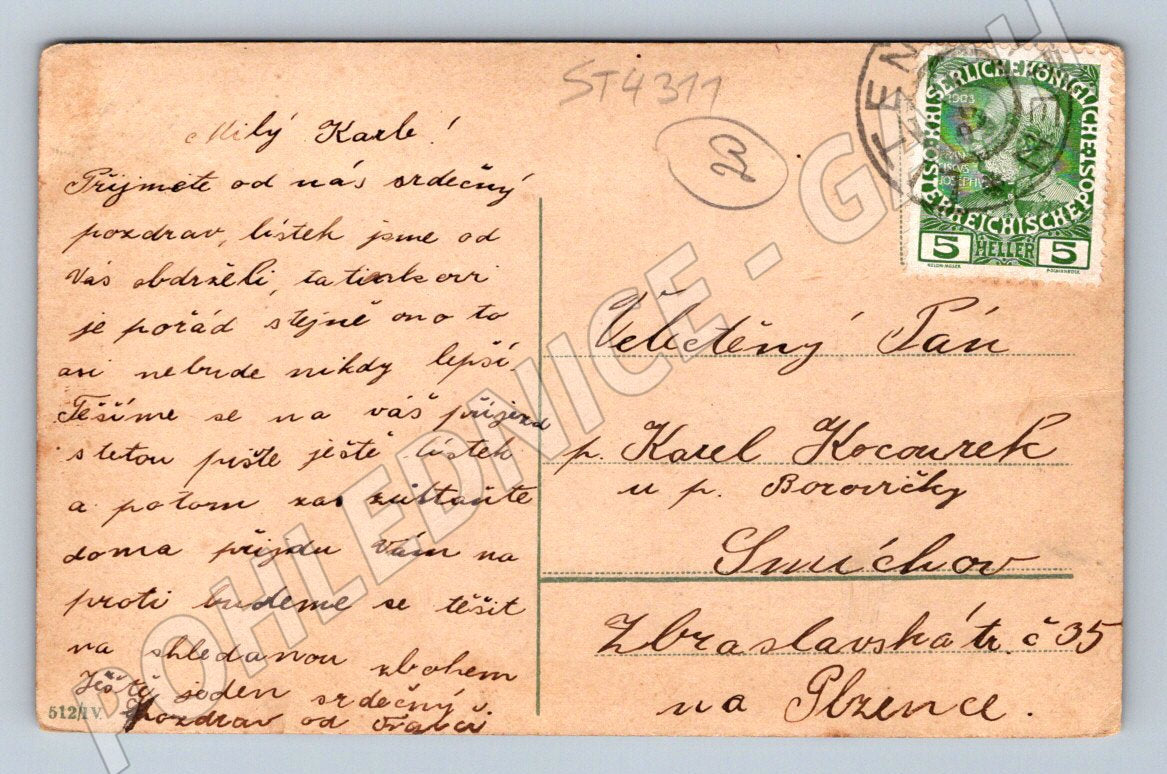 ST4311
Milý Karle!
Přijmete od nás srdečný
pozdrav, lístek jsme od
Vás obdrželi, tatínkovi
je pořád stejně ono to
asi nebude nikdy lepší.
Těšíme se na váš příjezd
s tetou pište ještě lístek
a potom zas zůstaňte
doma přijdu Vám na
proti budeme se těšit
na shledanou zbohem
Ještě jeden srdečný
pozdrav od
512/IV.
1908
KAISERLICHE KÖNIGLICHE
ÖSTERREICHISCHE POST
5 HELLER 5
Velectěný Pán
p. Karel Kocourek
u p. Borovičky
Smíchov
Zbraslavská tř. č 35
na Plzence.
POHLEDNICE -